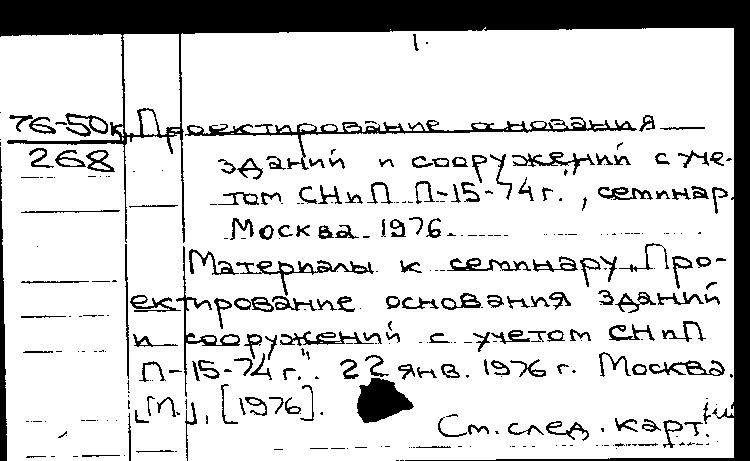 1.
76-50к "Проектирование основания
268 зданий и сооружений с уче-
том СНиП П-15-74г.", семинар.
Москва. 1976.
Материалы к семинару „Про-
ектирование основания зданий
и сооружений с учетом СНиП
П-15-74г.". 22 янв. 1976 г. Москва.
[М.], [1976].
См. след. карт.